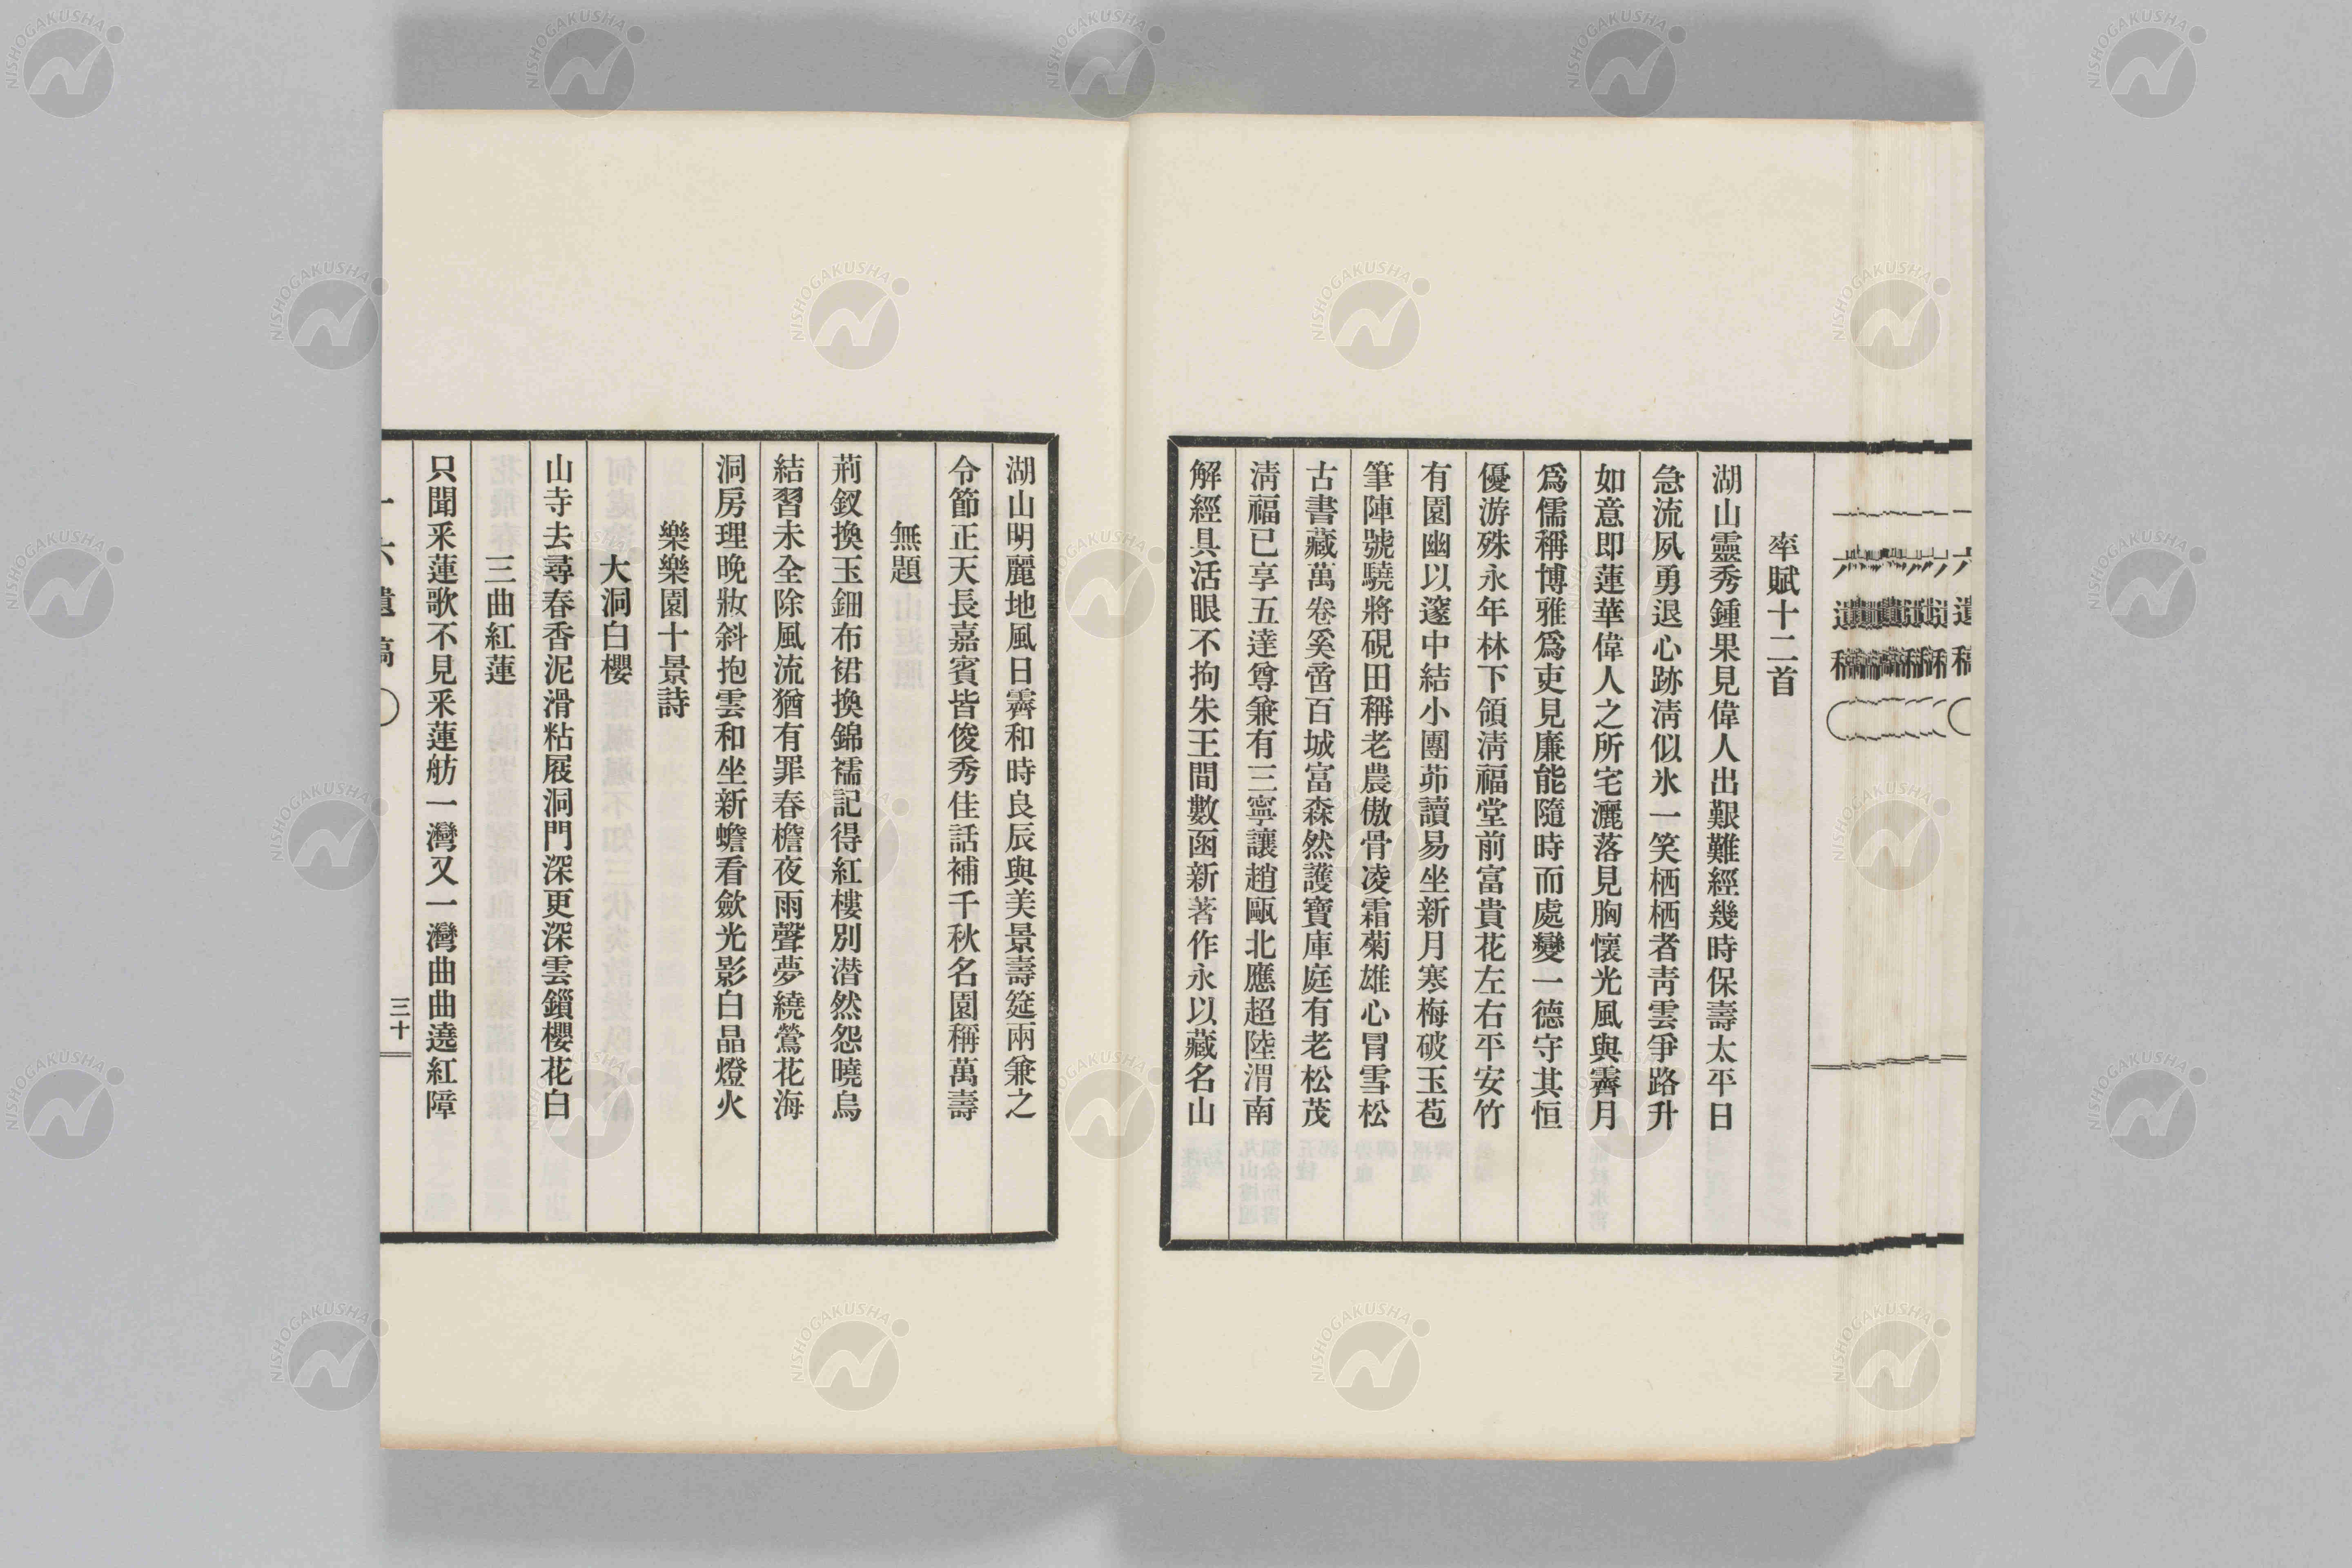 一六遺稿
率賦十二首
湖山靈秀鍾果見偉人出艱難經幾時保壽太平日
急流夙勇退心跡淸似氷一笑栖栖者靑雲爭路升
如意即蓮華偉人之所宅灑落見胸懷光風與霽月
爲儒稱博雅爲吏見廉能隨時而處變一德守其恒
優游殊永年林下領淸福堂前富貴花左右平安竹
有園幽以邃中結小團茆讀易坐新月寒梅破玉苞
筆陣號驍將硯田稱老農傲骨凌霜菊雄心冒雪松
古書藏萬卷奚啻百城富森然護寶庫庭有老松茂
淸福已享五達尊兼有三寧讓趙甌北應超陸渭南
解經具活眼不拘朱王間數函新著作永以藏名山
湖山明麗地風日霽和時良辰與美景壽筵兩兼之
令節正天長嘉賓皆俊秀佳話補千秋名園稱萬壽
無題
荊釵換玉鈿布裙換錦襦記得紅樓別潜然怨曉烏
結習未全除風流猶有罪春檐夜雨聲夢繞鶯花海
洞房理晚妝斜抱雲和坐新蟾看歛光影白晶燈火
樂樂園十景詩
大洞白櫻
山寺去尋春香泥滑粘屐洞門深更深雲鎖櫻花白
三曲紅蓮
只聞釆蓮歌不見釆蓮舫一灣又一灣曲曲遶紅障
一六遺稿
三十
NISHOGAKUSHA